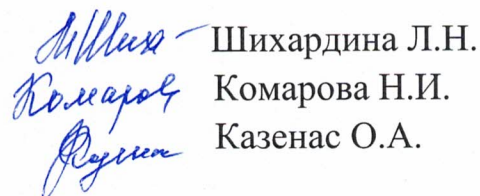 Шихардина Л.Н.
Комаров Комарова Н.И.
Казенас О.А.